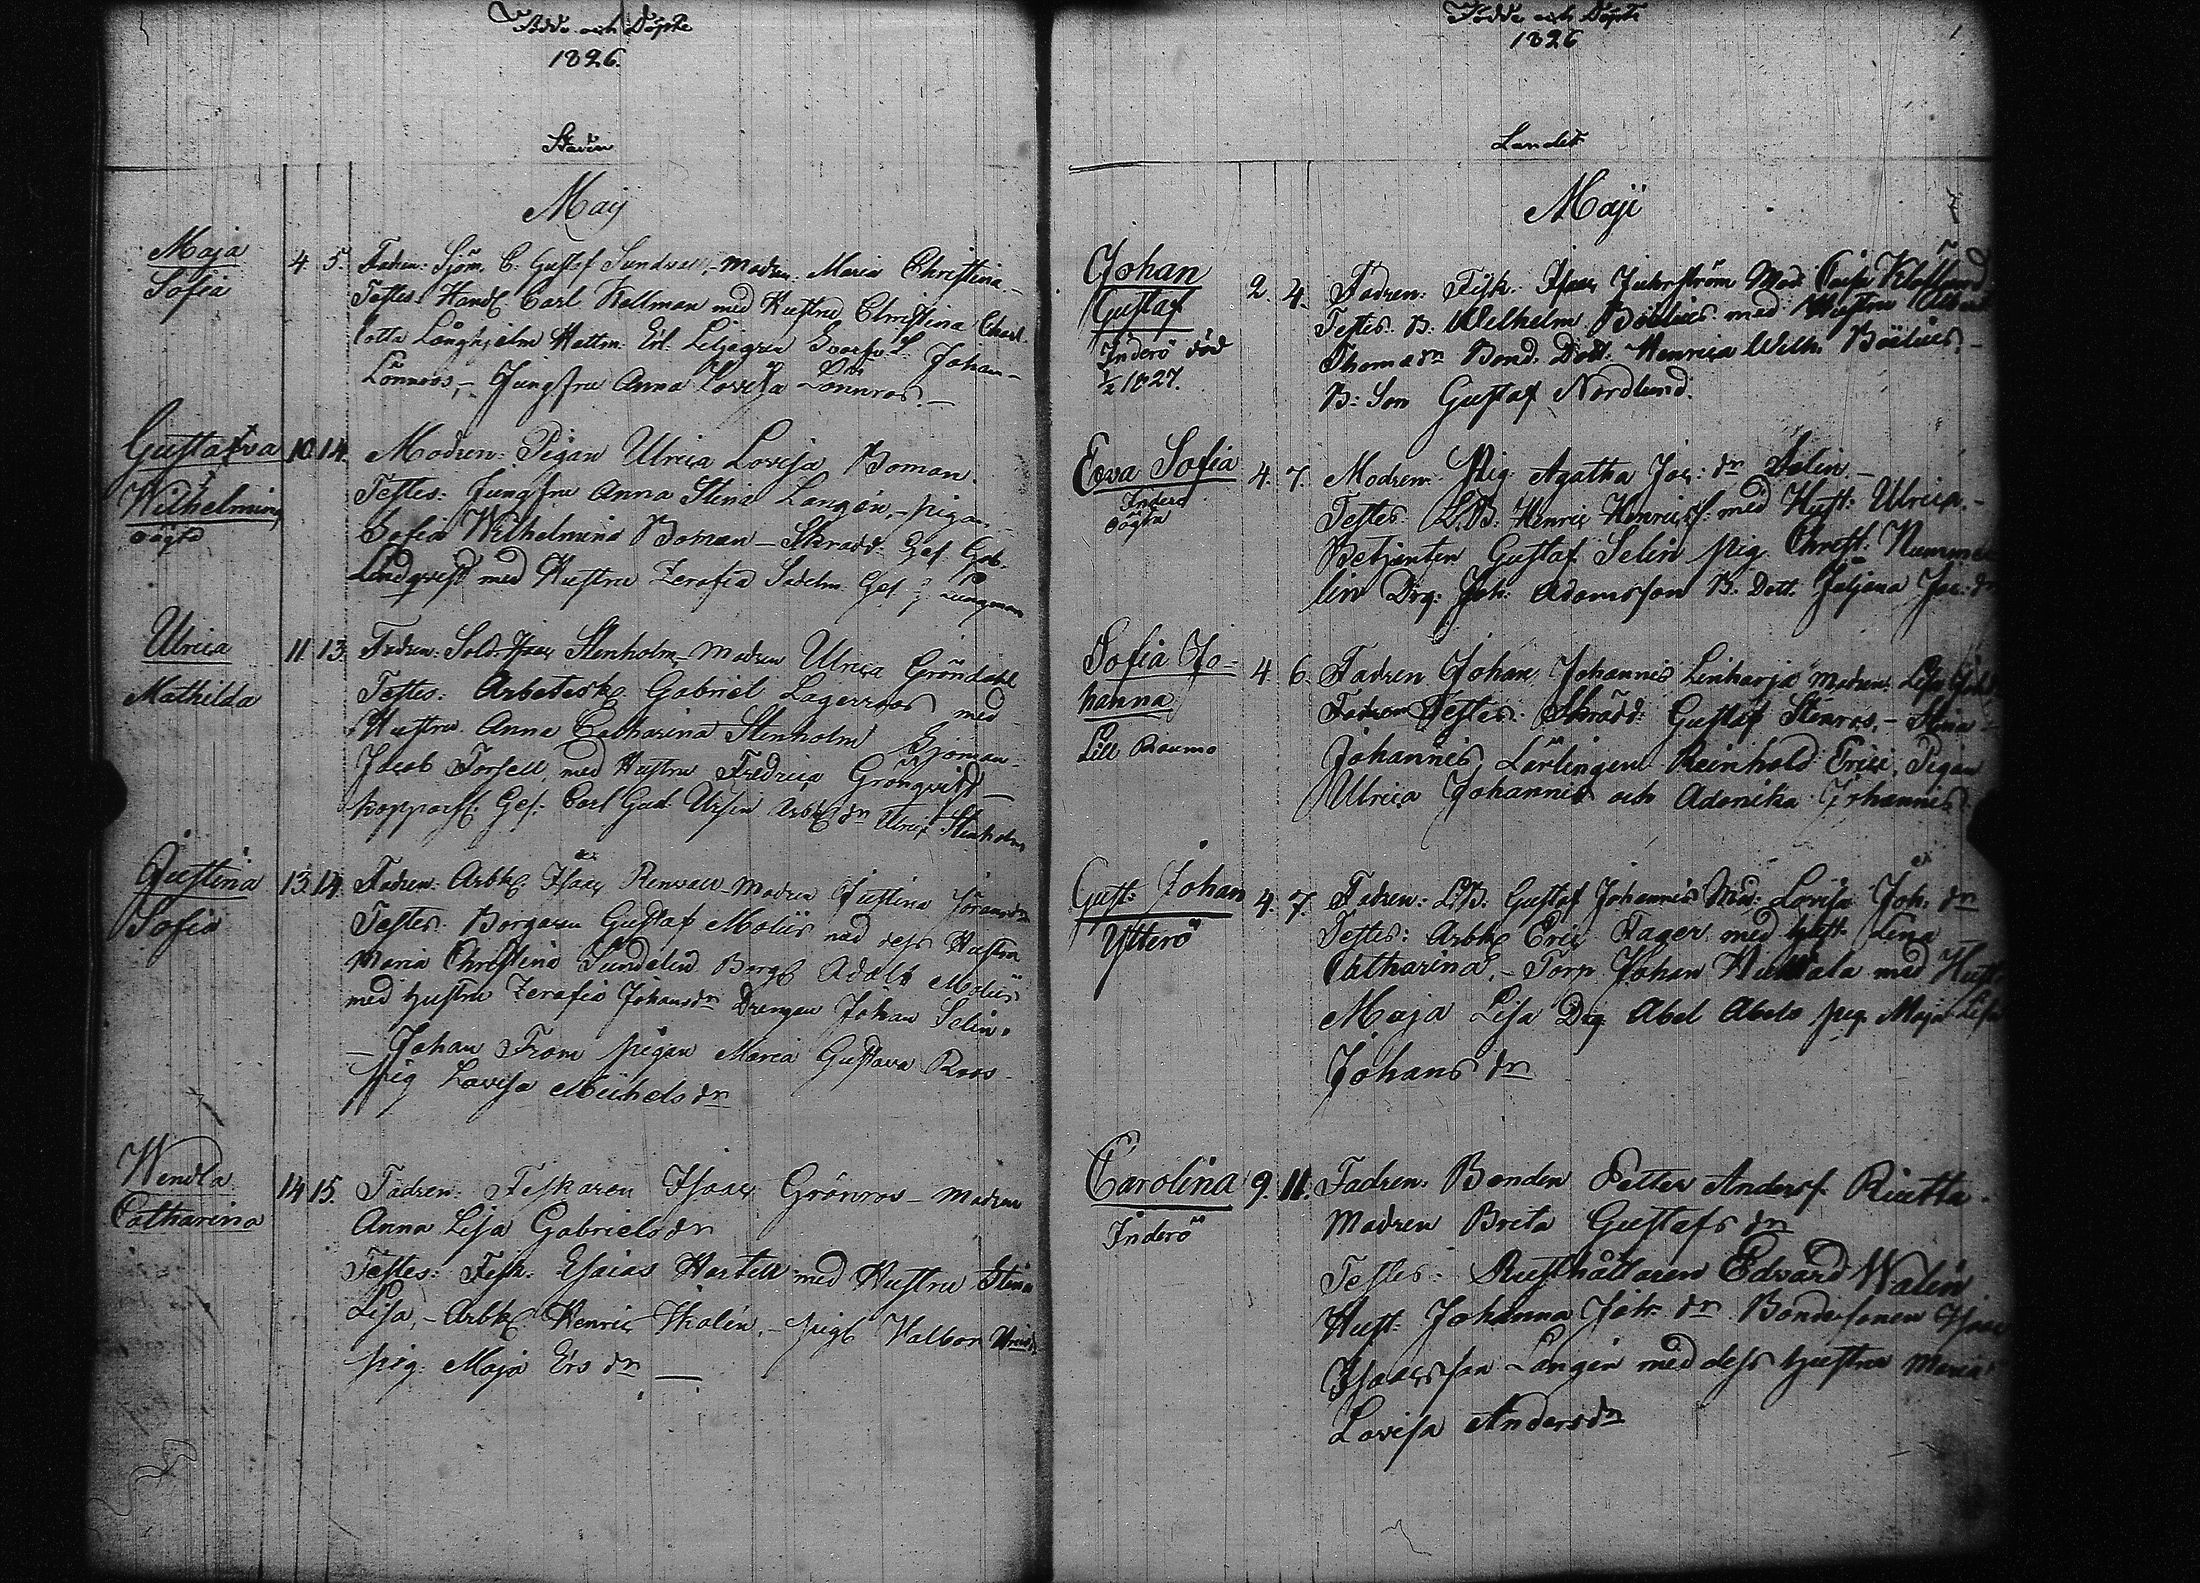 Födde och Döpte
1826.
Staden
Maij
Maja
Sofia
4. 5. Fadren: Sjöm. C. Gustaf Sundvall, Modren: Maria Christina
Testes: Handl. Carl Kallman med Hustru Christina Charl-
otta Långhjelm Hattm. Johan
Lönnros, - Jungfru Anna Lovisa Lönnros.
Gustafva
Wilhelmina
oägta
10. 14. Modren: Pigan Ulrica Lovisa Boman.
Testes: Jungfru Anna Stina Langén, - pigan
Sofia Wilhelmina Boman - Skradd. Ges. Gab.
Lindqvist med Hustru Zerafia Sadelm. Ges. J. Lungman
Ulrica
Mathilda
11. 13. Fadren: Sold. Isaac Stenholm, Modren Ulrica Gröndahl
Testes: Arbetesk. Gabriel Lagerroos med
Hustru Anna Catharina Stenholm Sjöman
Jacob Forsell med Hustru Fredrica Grönqvist
kopparsl. Ges: Carl Gust. Ursin Arbk. dr Ulrica Stenholm
Justina
Sofia
13. 14. Fadren: Arbk. Isaac Renvall - Modren Justina Göransdr
Testes: Borgaren Gustaf Moliis med dess Hustru
Maria Christina Sundelin Borg. Adolf Moliis
med hustru Zerafia Johansdr Drengen Johan Selin.
- Johan From pigan Maria Gustava Roos
pig Lovisa Michelsdr
Wendla
Catharina
14. 15. Fadren: Fiskaren Isaac Grönros - Modren
Anna Lisa Gabrielsdr
Testes: Fisk. Esaias Hartell med Hustru Stina
Lisa, - Arbk. Henric Thalin, - pig. Valbor
pig. Maja Ersdr
Födde och Döpte
1826
Landet
Maji
Johan
Gustaf
Inderö död
1/2 1827.
2. 4. Fadren: Fisk. Isaac Mod: Caisa
Testes: B. Wilhelm Böelius med Hustru
Thomasdr Bond. Dott. Henrica Wilh. Böelius,
B: Son Gustaf Nordlund.
Eva Sofia
Inderö
oägta
4. 7. Modren: Pig Agatha Jac: dr Salin
Testes: L.B. Henric Henrics: med Hust: Ulrica
Betjenten Gustaf Selin pig Christ: Numme
lin Drg: Joh: Adamsson B. Dott. Taljana Jac: dr
Sofia Jo-
hanna
Lill Raumo
4 6 Fadren Johan Johannis Linharja Modren: Lisa
Testes: Skrädd: Gustaf Stenros, - Stina
Johannis Lärlingen Reinhold Erici, Pigan
Ulrica Johannis och Adonika Johannis
Gust: Johan
Ytterö
4. 7. Fadren: L.B. Gustaf Johannis Mod: Lovisa Joh. dr
Testes: Arbk Eric Fager med hust Lena
Catharina, - Torp Johan med Hust.
Maja Lisa Drg Abel Abels pig Maja Lisa
Johansdr
Carolina
Inderö
9. 11. Fadren: Bonden Petter Anders. Riutta.
Modren Breta Gustafsdr
Testes: Rusthållaren Edvard Walin
Hust: Johanna Joh: dr Bondesonen Isaac
Isaacsson Langén med dess hustru Maria
Lovisa Andersdr